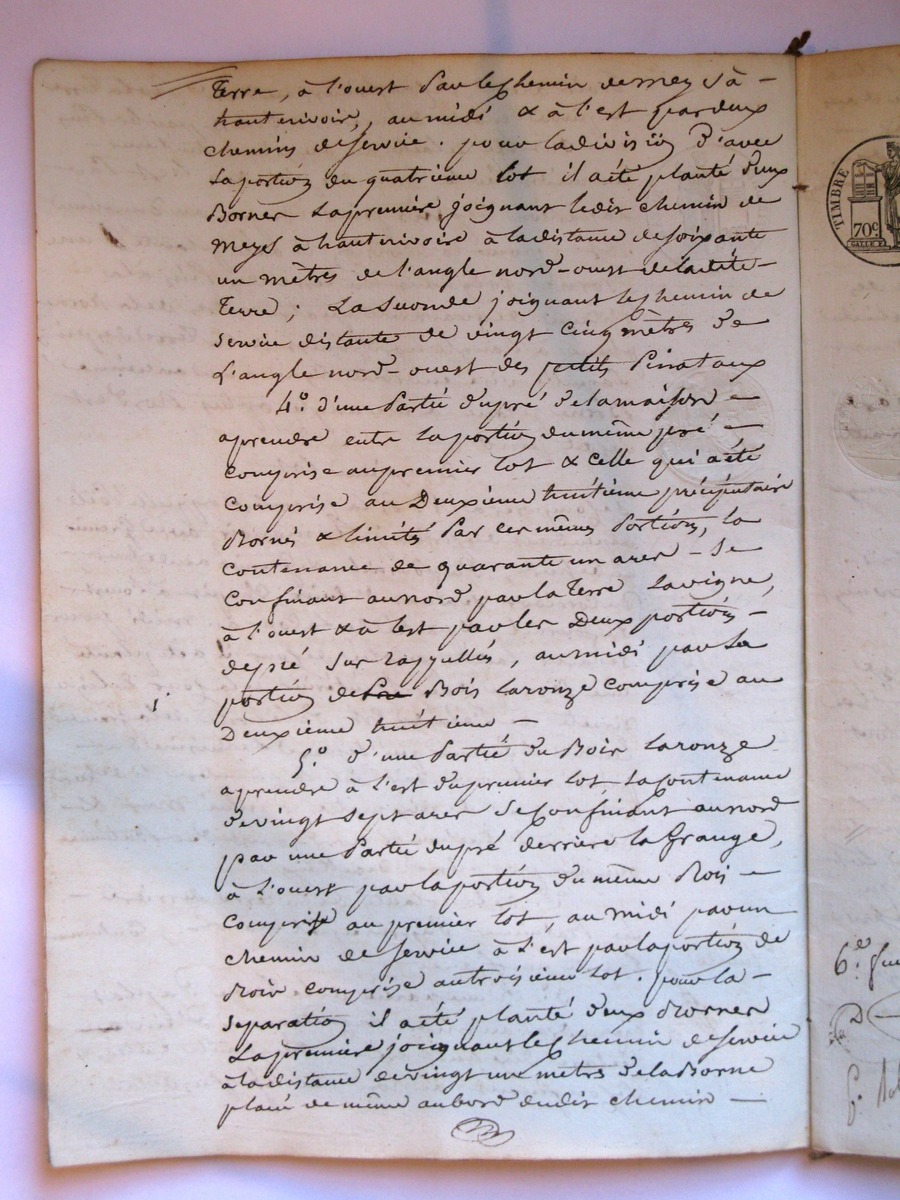 Terre, à l'ouest par le chemin de Meys à —
hauterivoire, au midi & à l'est par deux
chemins de service. pour la division d'avec
la portion du quatrième lot il a été planté deux
Bornes la première joignant le dit chemin de
Meys à hauterivoire à la distance de soixante
un mètres de l'angle nord-ouest de la dite —
Terre; La seconde joignant le chemin de
service distante de vingt cinq mètres de
L'angle nord-ouest des petits Pinataux
4.° d'une Partie du pré de la maison —
a prendre entre la portion du même pré —
comprise au premier lot & celle qui a été
comprise au Deuxième huitième préciputaire
Bornés & limités Par ces mêmes Portions, la
contenance de quarante un ares — se
confinant au nord par la Terre La vigne,
à l'ouest & à l'est par les Deux portions —
de pré sus rappellés, au midi par la
portion de Bois Laronze comprise au
Deuxième huitième —
5.° d'une Partie du Bois Laronze
a prendre à l'est du premier lot la contenance
de vingt sept ares se confinant au nord
par une Partie du pré derrière la Grange,
à l'ouest par la portion du même Bois —
comprise au premier lot, au midi par un
chemin de service à l'est par la portion de
Bois comprise au troisième lot. pour la —
separation il a été planté deux Bornes
La première joignant le chemin de service
à la distance de vingt un mètres de la Borne
placé de même au bord du dit chemin —
TIMBRE
70c
6.e